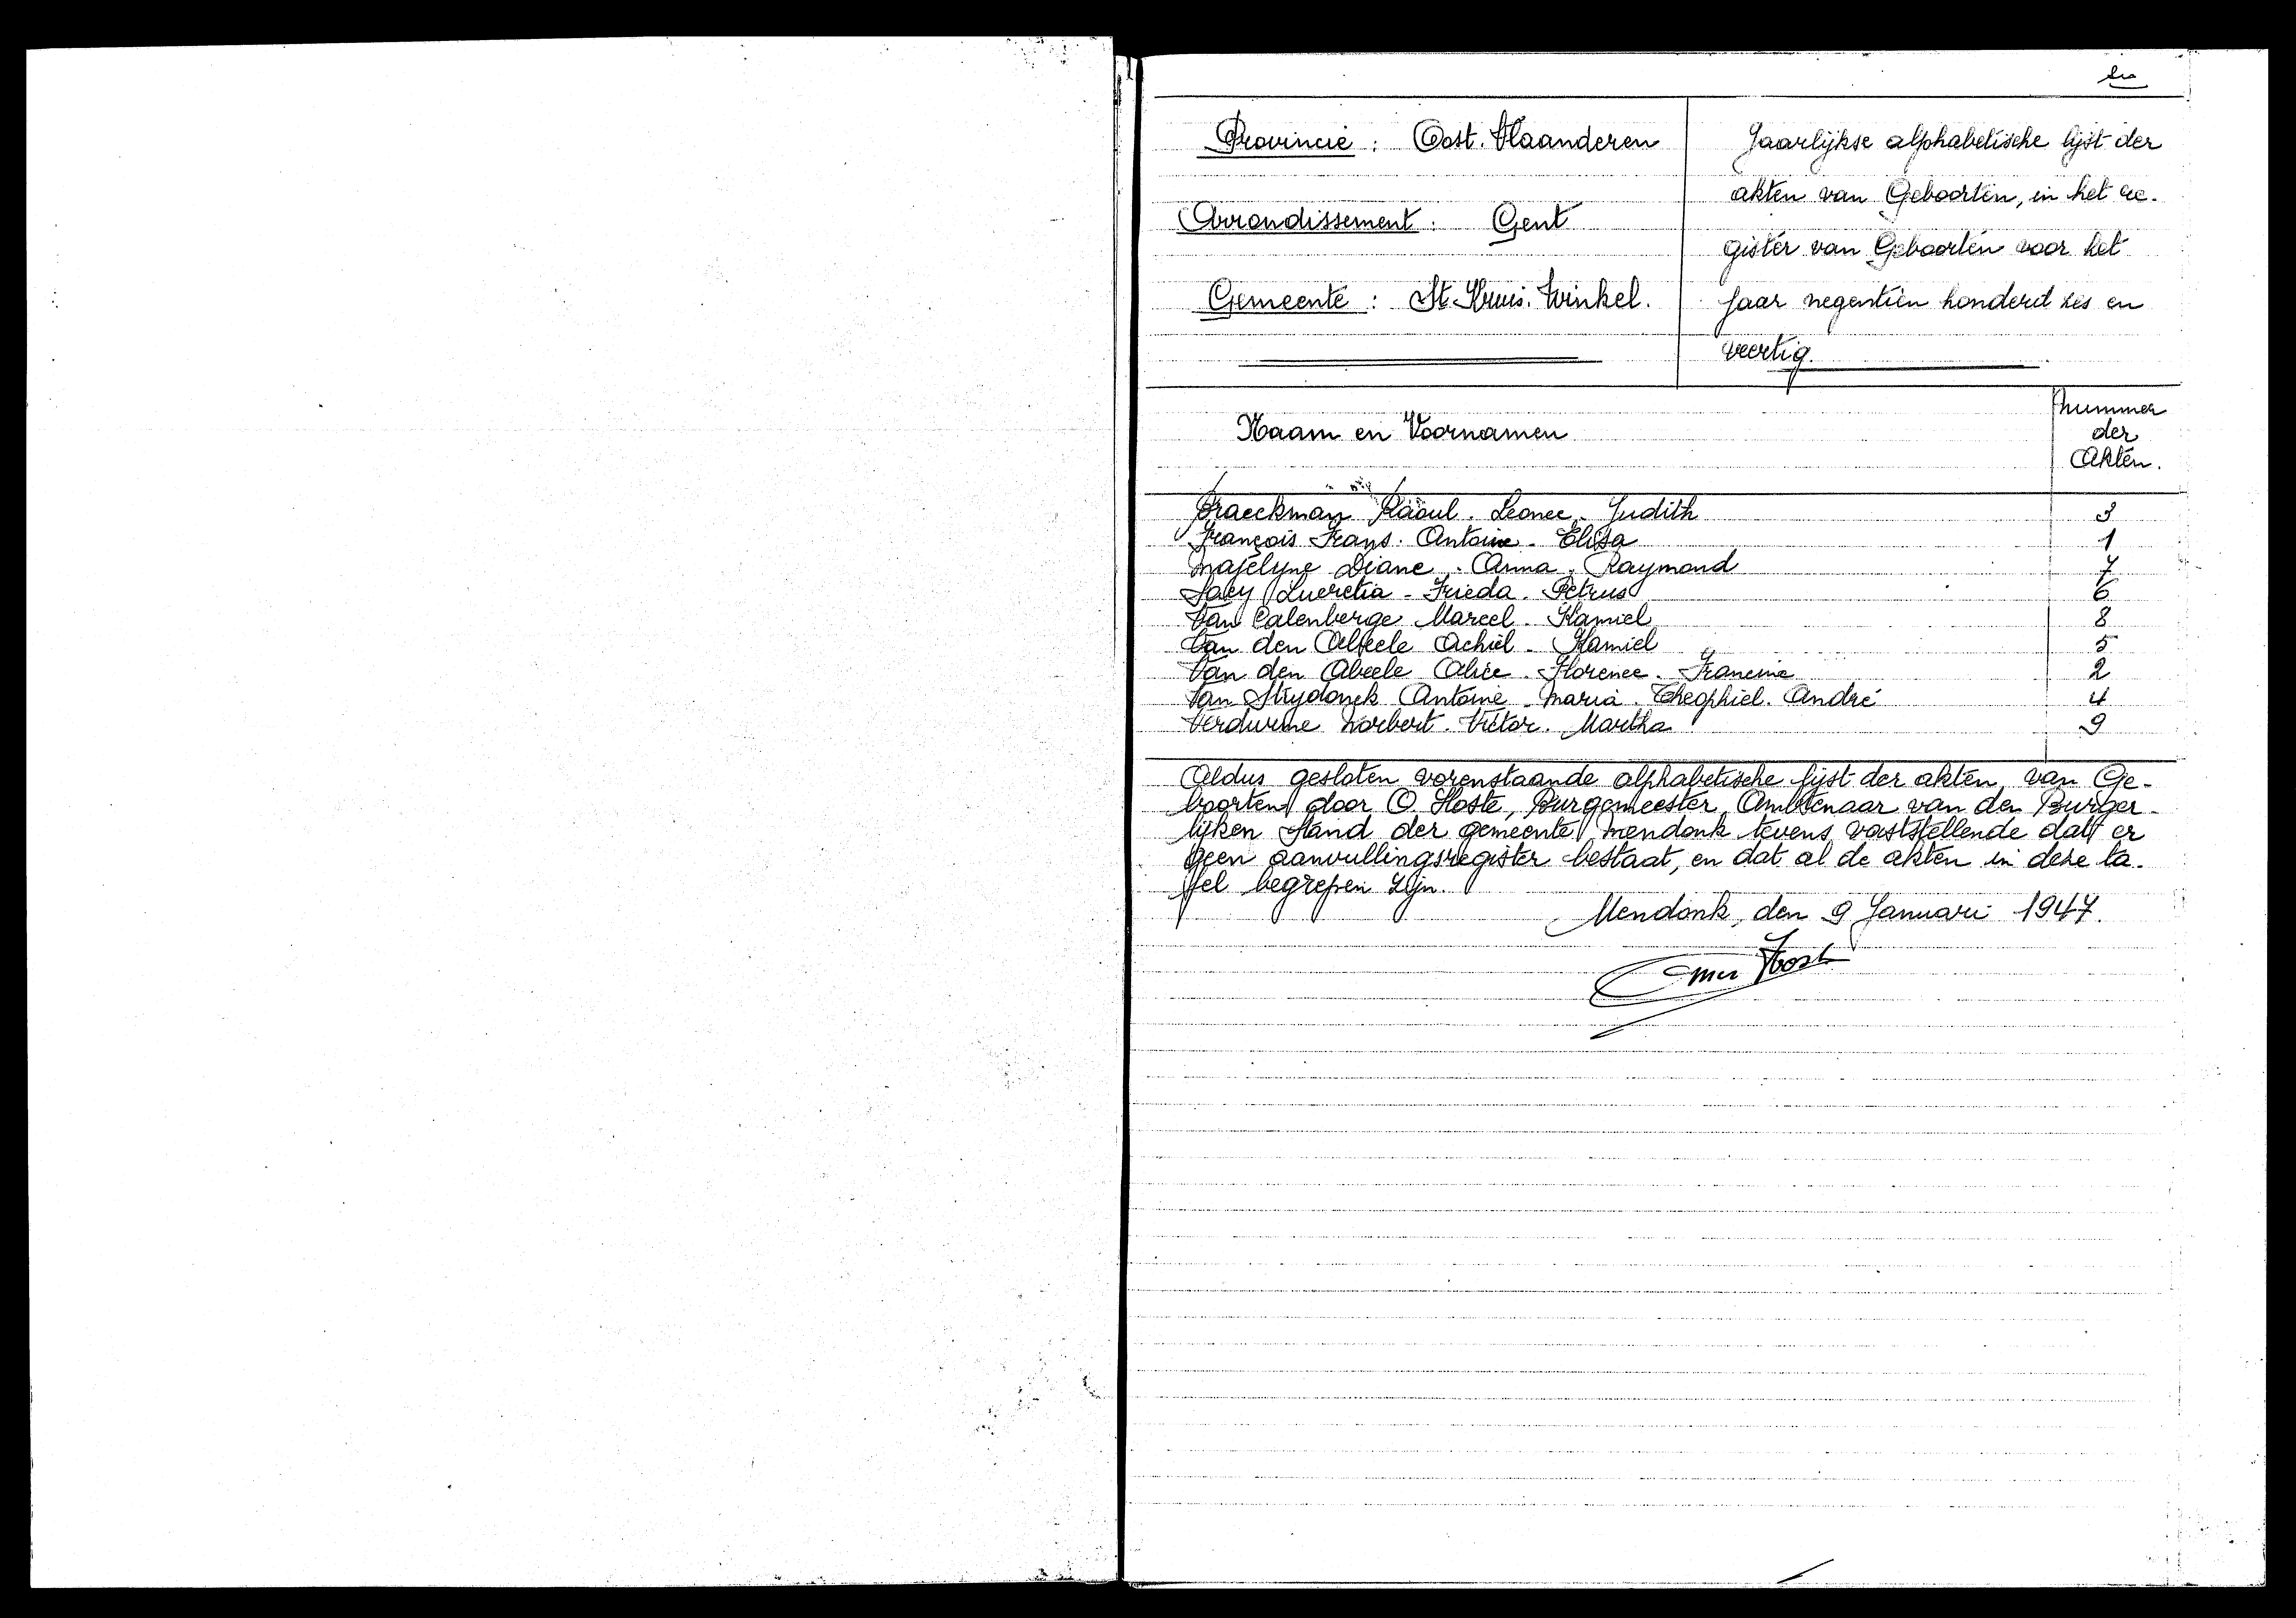 Provincie : Oost. Vlaanderen
Arrondissement : Gent
Gemeente : St. Kruis. Winkel.
Jaarlijkse alphabetische lijst der
akten van Geboorten, in het re-
gister van Geboorten voor het
jaar negentien honderd zes en
veertig.
Naam en Voornamen
Nummer
der
Akten.
Braeckman Raoul. Leonce. Judith 3
François Frans. Antoine - Elisa 1
Matelyne Diane. Anna. Raymond 7
Saey Lucretia - Frieda. Petrus 6
Van Calenberge Marcel. Kamiel 8
Van den Abeele Achiel - Kamiel 5
Van den Abeele Alice. Florence. Francine 2
Van Strydonck Antoine. Maria. Theophiel. André 4
Verdurme Norbert. Victor. Martha 9
Aldus gesloten vorenstaande alphabetische lijst der akten van Ge-
boorten door O. Hoste, Burgemeester, Ambtenaar van den Burger-
lijken Stand der gemeente Mendonk tevens vaststellende dat er
geen aanvullingsregister bestaat, en dat al de akten in deze ta-
fel begrepen zijn.
Mendonk, den 9 Januari 1947.
Omer Hoste